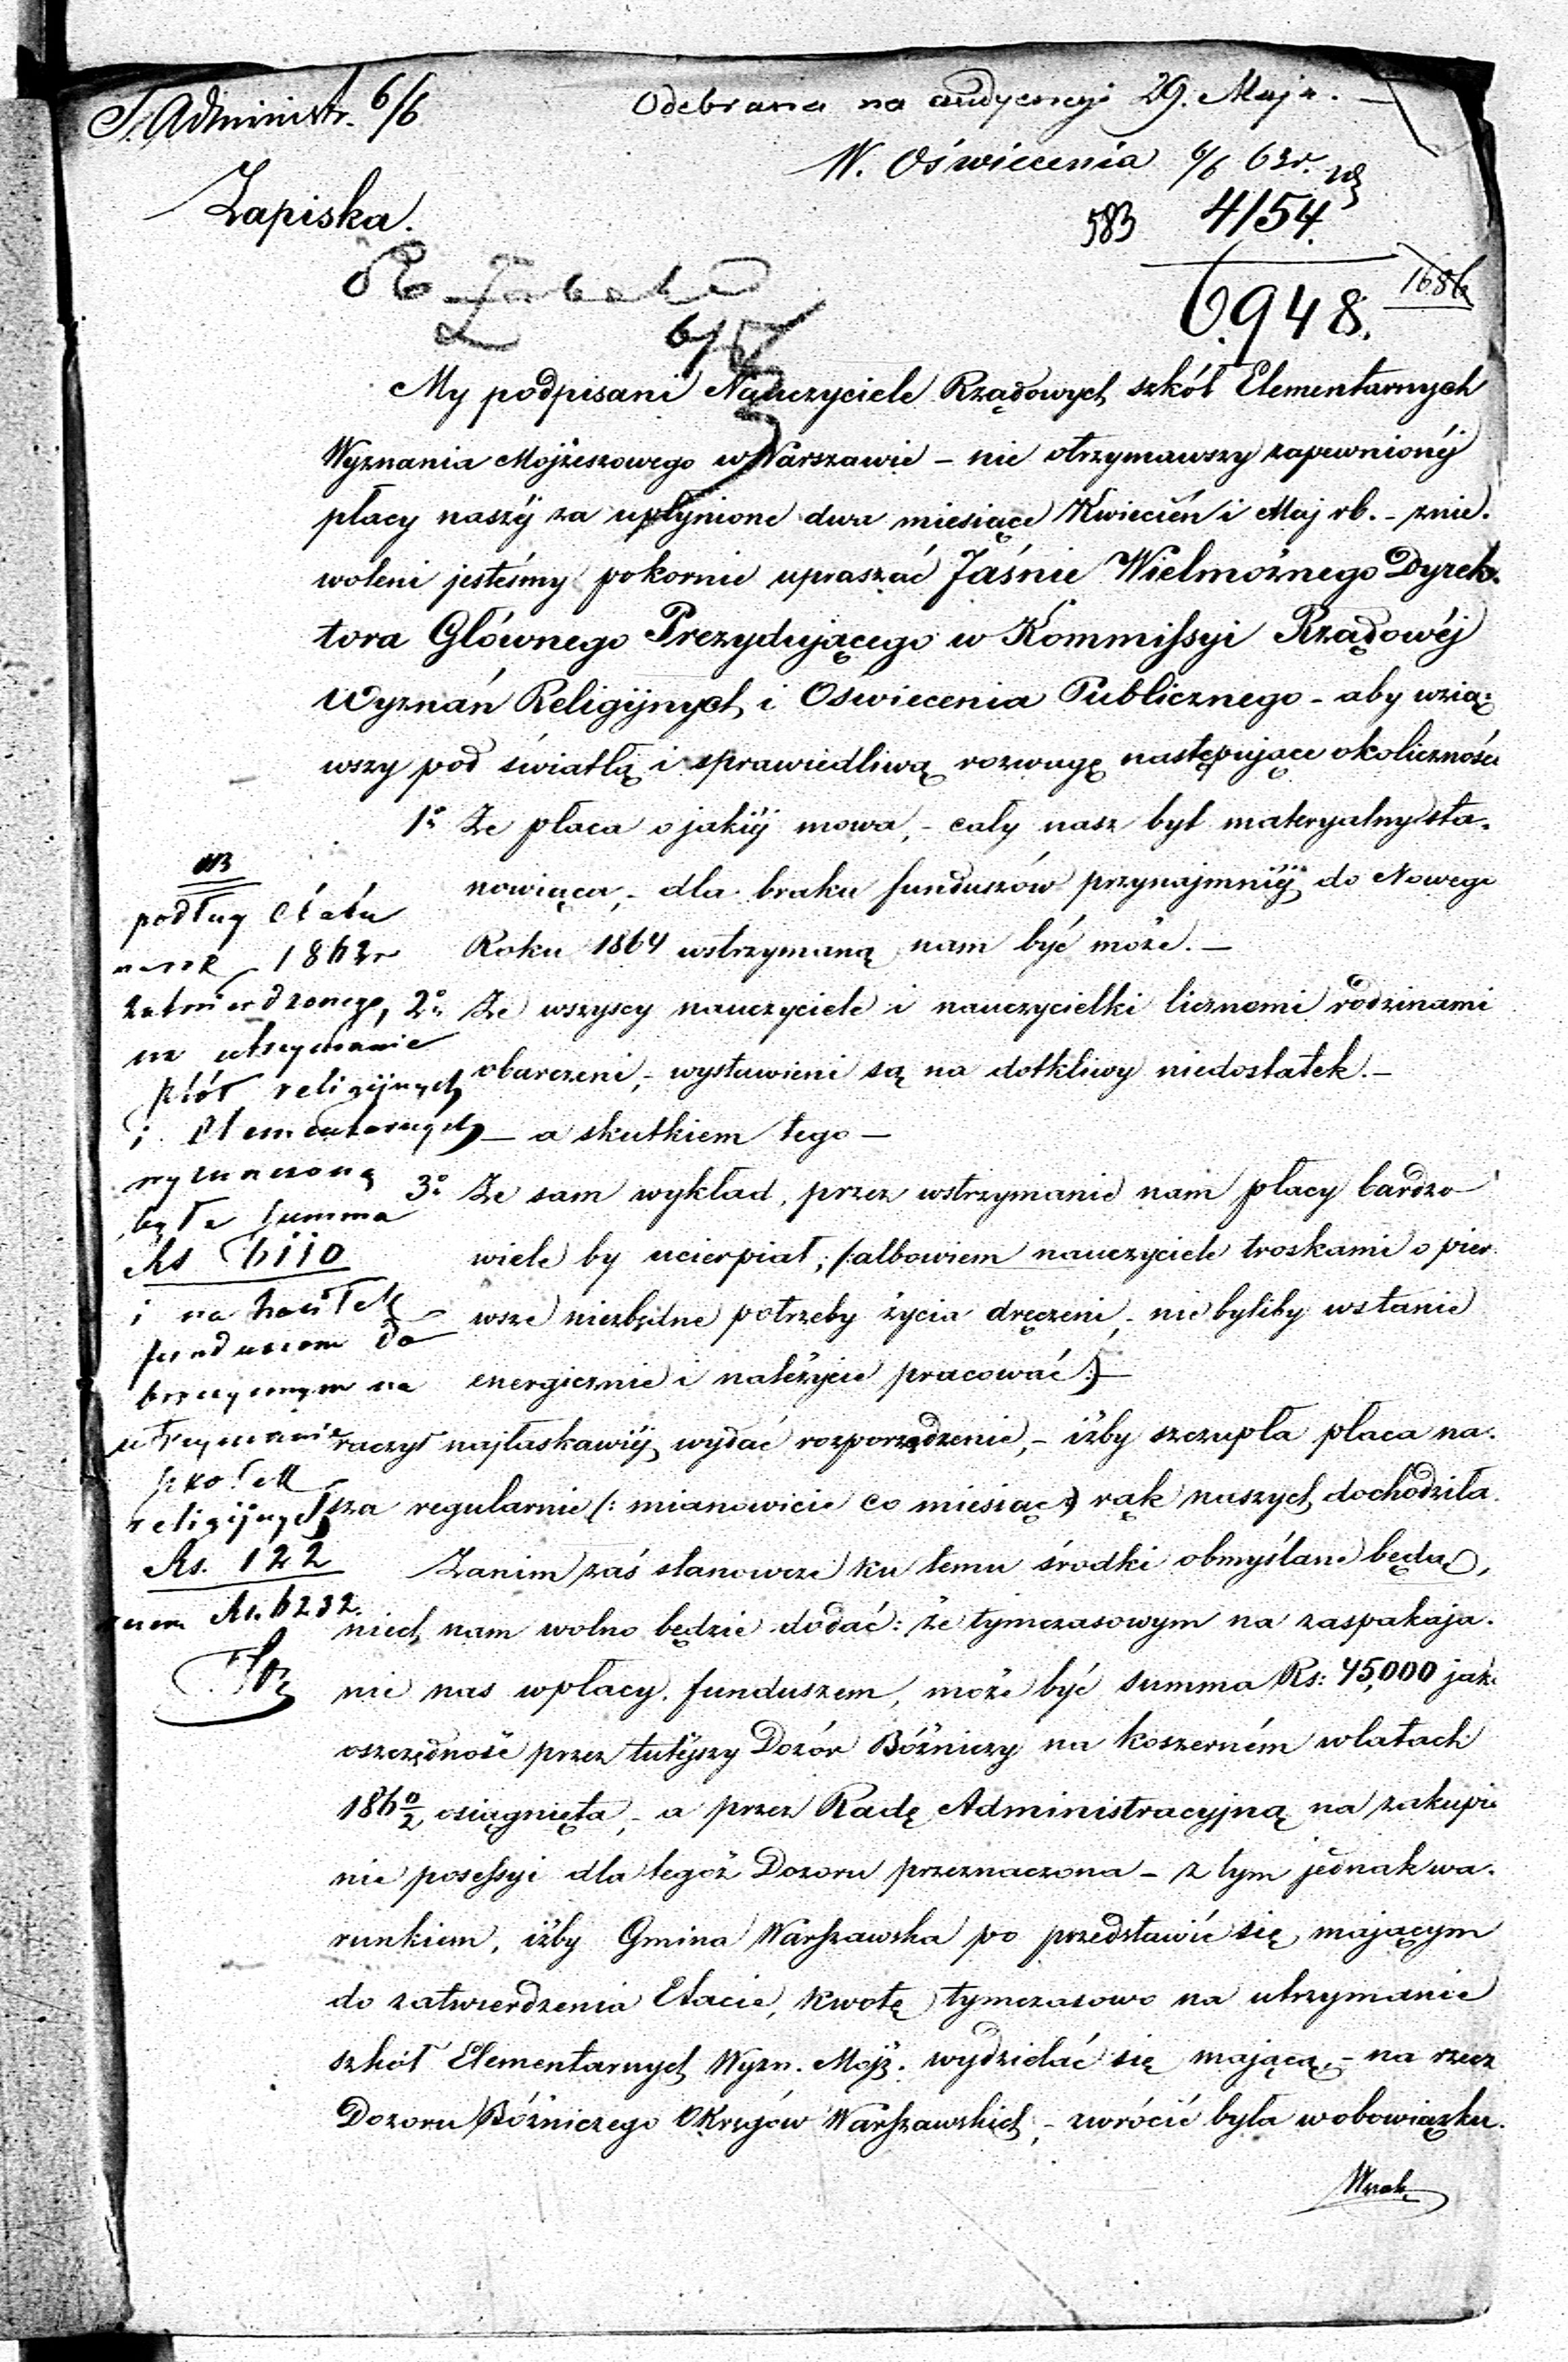 Odebrana na audyencyi 29. Maja. —
T. Administr. 6/6
W. Oświecenia 6/6 63r.
Zapiska.
583 4154.
1686
6948.
6/6
My podpisani Nauczyciele Rządowych szkół Elementarnych
Wyznania Mojżeszowego w Warszawie – nie otrzymawszy zapewnionéj
płacy naszéj za upłynione dwa miesiące Kwiecień i Maj rb. – znie-
woleni jesteśmy pokornie upraszać Jaśnie Wielmożnego Dyrek-
tora Głównego Prezydującego w Kommissyi Rządowéj
Wyznań Religijnych i Oświecenia Publicznego – aby wzią-
wszy pod światłą i sprawiedliwą rozwagę następujące okoliczności
1o Że płaca o jakiéj mowa, – cały nasz byt materyalny sta-
nowiąca, – dla braku funduszów przynajmniéj do Nowego
Roku 1864 wstrzymaną nam być może. —
2o Że wszyscy nauczyciele i nauczycielki licznemi rodzinami
obarczeni, – wystawieni są na dotkliwy niedostatek. —
— a skutkiem tego —
3o Że sam wykład, przez wstrzymanie nam płacy bardzo
wiele by ucierpiał; /:albowiem nauczyciele troskami o pier-
wsze niezbędne potrzeby życia dręczeni, – nie byliby wstanie
energicznie i należycie pracować:/ —
raczył najłaskawiéj wydać rozporządzenie, – iżby szczupła płaca na-
sza regularnie (: mianowicie co miesiąc:) rąk naszych dochodziła.
Zanim zaś stanowcze ku temu środki obmyślane będą,
niech nam wolno będzie dodać: że tymczasowym na zaspakaja-
nie nas wpłacy funduszem, może być summa Rs: 45,000 jako
oszczędność przez tutéjszy Dozór Bóżniczy na koszerném wlatach
1860/2 osiągnięta, – a przez Radę Administracyjną na zakupie-
nie posessyi dla tegoż Dozoru przeznaczona – z tym jednak wa-
runkiem, iżby Gmina Warszawska po przedstawić się mającym
do zatwierdzenia Etacie, kwotę tymczasowo na utrzymanie
szkół Elementarnych Wyzn. Mojż. wydzielać się mającą, – na rzecz
Dozoru Bóżniczego Okręgów Warszawskich, – zwrócić była wobowiązku.
NB
podług Etatu
na rok 1862r
zatwierdzonego,
na utrzymanie
szkół religijnych
i Elementarnych
wyznaczoną
była summa
Rs 6110
i na
funduszom do
na
utrzymanie
szkółek
religijnych
Rs. 122
razem Rs. 6232.